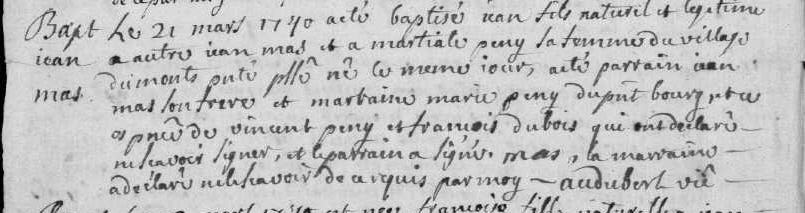 Bapt Le 21 mars 1740 a eté baptisé iean fils naturel et legitime
iean a autre iean mas et a martiale peny sa femme du village
du monts pnte pllê nê le meme iour, a eté parrain iean
mas mas son frere et marraine marie peny du pnt bourg et ce
pncê de vincent peny et francois dubois qui ont declarê
ne scavoir signer, et le parrain a signé. mas, la marraine
a declarê ne le scavoir de ce requis par moy – audubert viê